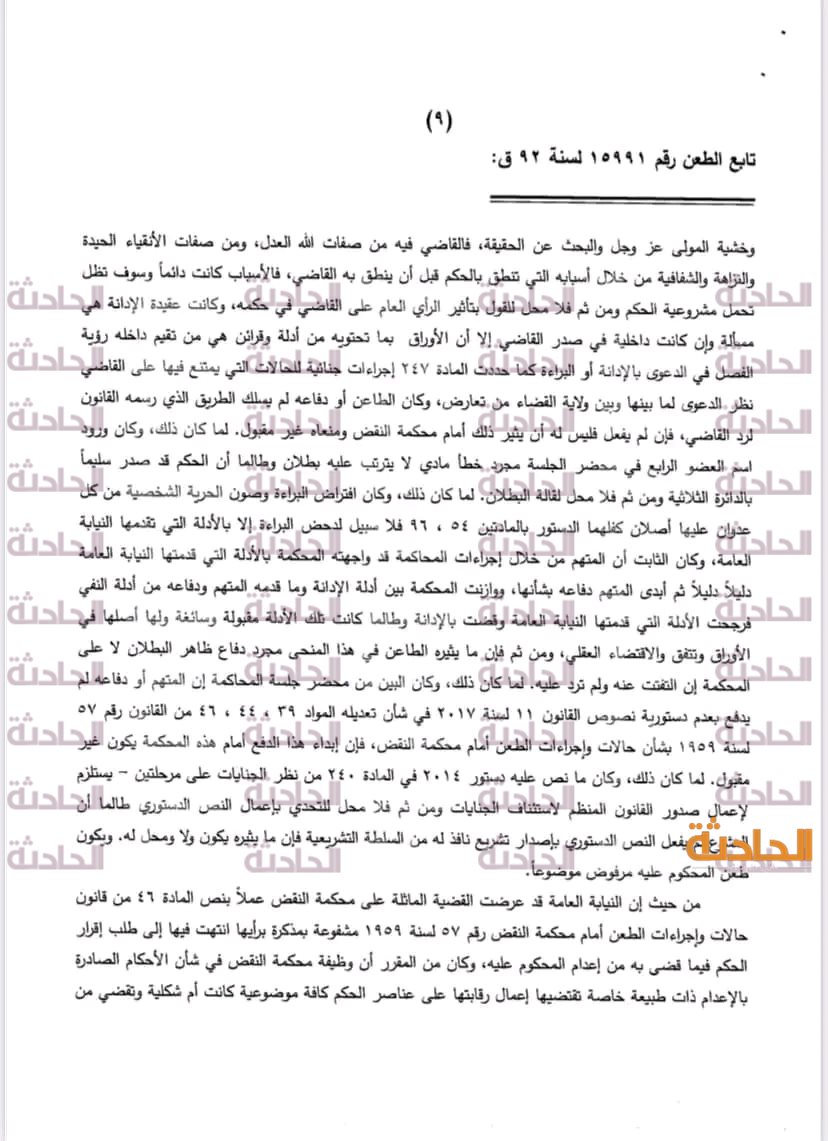 (٩)
تابع الطعن رقم ١٥٩٩١ لسنة ٩٢ ق:
وخشية المولى عز وجل والبحث عن الحقيقة، فالقاضي فيه من صفات الله العدل، ومن صفات الأنقياء الحيدة
والنزاهة والشفافية من خلال أسبابه التي تنطق بالحكم قبل أن ينطق به القاضي، فالأسباب كانت دائماً وسوف تظل
تحمل مشروعية الحكم ومن ثم فلا محل للقول بتأثير الرأي العام على القاضي في حكمه، وكانت عقيدة الإدانة هي
مسألة وإن كانت داخلية في صدر القاضي إلا أن الأوراق بما تحتويه من أدلة وقرائن هي من تقيم داخله رؤية
الفصل في الدعوى بالإدانة أو البراءة كما حددت المادة ٢٤٧ إجراءات جنائية للحالات التي يمتنع فيها على القاضي
نظر الدعوى لما بينها وبين ولاية القضاء من تعارض، وكان الطاعن أو دفاعه لم يسلك الطريق الذي رسمه القانون
لرد القاضي، فإن لم يفعل فليس له أن يثير ذلك أمام محكمة النقض ومنعاه غير مقبول. لما كان ذلك، وكان ورود
اسم العضو الرابع في محضر الجلسة مجرد خطأ مادي لا يترتب عليه بطلان وطالما أن الحكم قد صدر سليماً
بالدائرة الثلاثية ومن ثم فلا محل لقالة البطلان. لما كان ذلك، وكان افتراض البراءة وصون الحرية الشخصية من كل
عدوان عليها أصلان كفلهما الدستور بالمادتين ٥٤ ، ٩٦ فلا سبيل لدحض البراءة إلا بالأدلة التي تقدمها النيابة
العامة، وكان الثابت أن المتهم من خلال إجراءات المحاكمة قد واجهته المحكمة بالأدلة التي قدمتها النيابة العامة
دليلاً دليلاً ثم أبدى المتهم دفاعه بشأنها، ووازنت المحكمة بين أدلة الإدانة وما قدمه المتهم ودفاعه من أدلة النفي
فرجحت الأدلة التي قدمتها النيابة العامة وقضت بالإدانة وطالما كانت تلك الأدلة مقبولة وسائغة ولها أصلها في
الأوراق وتتفق والاقتضاء العقلي، ومن ثم فإن ما يثيره الطاعن في هذا المنحى مجرد دفاع ظاهر البطلان لا على
المحكمة إن التفتت عنه ولم ترد عليه. لما كان ذلك، وكان البين من محضر جلسة المحاكمة إن المتهم أو دفاعه لم
يدفع بعدم دستورية نصوص القانون ١١ لسنة ٢٠١٧ في شأن تعديله المواد ٣٩ ، ٤٤ ، ٤٦ من القانون رقم ٥٧
لسنة ١٩٥٩ بشأن حالات وإجراءات الطعن أمام محكمة النقض، فإن إبداء هذا الدفع أمام هذه المحكمة يكون غير
مقبول. لما كان ذلك، وكان ما نص عليه دستور ٢٠١٤ في المادة ٢٤٠ من نظر الجنايات على مرحلتين – يستلزم
لإعمال صدور القانون المنظم لاستئناف الجنايات ومن ثم فلا محل للتحدي بإعمال النص الدستوري طالما أن
المشرع لم يفعل النص الدستوري بإصدار تشريع نافذ له من السلطة التشريعية فإن ما يثيره يكون ولا ومحل له. ويكون
طعن المحكوم عليه مرفوض موضوعاً.
من حيث إن النيابة العامة قد عرضت القضية الماثلة على محكمة النقض عملاً بنص المادة ٤٦ من قانون
حالات وإجراءات الطعن أمام محكمة النقض رقم ٥٧ لسنة ١٩٥٩ مشفوعة بمذكرة برأيها انتهت فيها إلى طلب إقرار
الحكم فيما قضى به من إعدام المحكوم عليه، وكان من المقرر أن وظيفة محكمة النقض في شأن الأحكام الصادرة
بالإعدام ذات طبيعة خاصة تقتضيها إعمال رقابتها على عناصر الحكم كافة موضوعية كانت أم شكلية وتقضي من
الحادثة